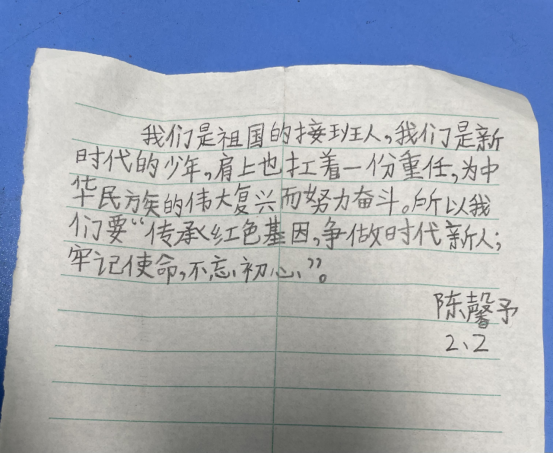 我们是祖国的接班人,我们是新
时代的少年,肩上也扛着一份重任,为中
华民族的伟大复兴而努力奋斗。所以我
们要“传承红色基因,争做时代新人;
牢记使命,不忘初心、”。
陈馨予
2、2